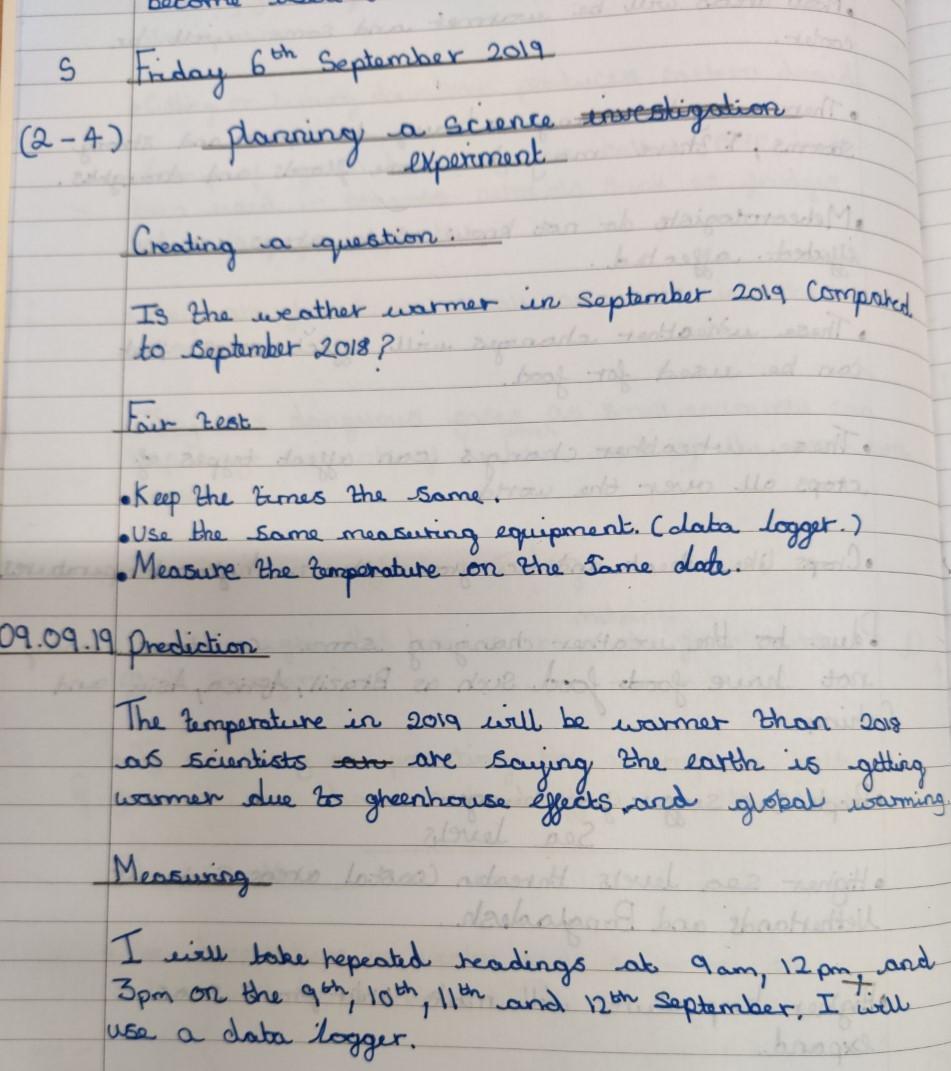 become
S Friday 6th September 2019
(2-4) planning a science investigation
experiment
Creating a question.
Is the weather warmer in September 2019 Compared
to September 2018?
Fair test
•Keep the times the same.
•Use the same measuring equipment. (data logger.)
•Measure the temperature on the same date.
09.09.19 Prediction
The temperature in 2019 will be warmer than 2018
as scientists are saying the earth is getting
warmer due to greenhouse effects and global warming
Measuring
I will take repeated readings at 9am, 12pm, and
3pm on the 9th, 10th, 11th and 12th September. I will
use a data logger.